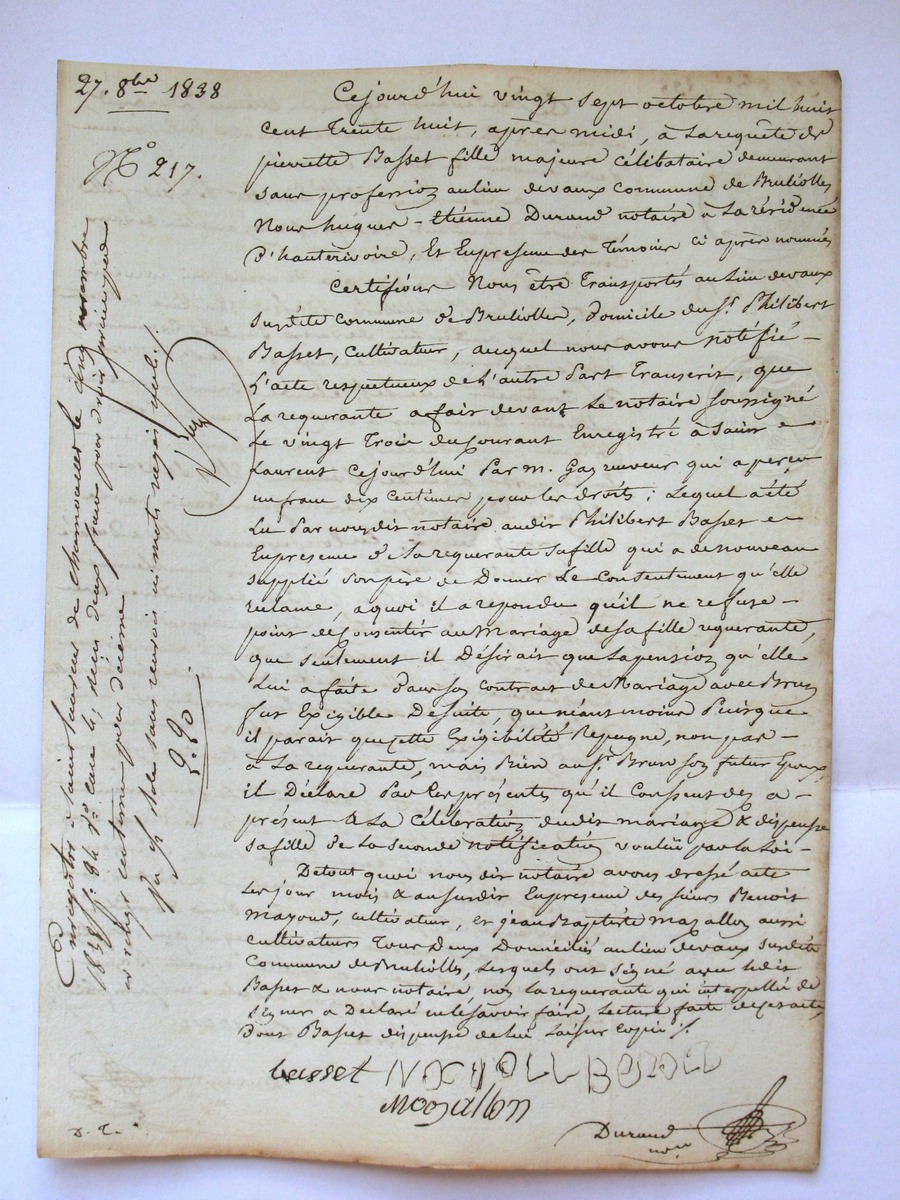 27. 8bre 1838
N° 217.
Cejourd'hui vingt sept octobre mil huit
cent trente huit, après midi, à la requête de
pierrette Basset fille majeure célibataire demeurant
sans profession au lieu devaux commune de Brulioles
Nous hugues-Etienne Durand notaire à la résidence
d'hauterivoire, et en presence des témoins ci après nommés
Certifions nous être transportés au lieu devaux
susdite commune de Bruliolles, domicile du Sr. Philibert
Basset, cultivateur, auquel nous avons notifié
L'acte respectueux de L'autre part transcrit, que
La requerante a fait devant Le notaire soussigné
Le vingt trois du courant Enregistré à Saint
Laurent cejourd'hui par m. Gay receveur qui a perçu
un franc dix centimes pour les droits; Lequel a été
Lu par nous dit notaire audit Philibert Basset
En presence de la requerante sa fille qui a de nouveau
supplié son père de Donner Le Contentement qu'elle
réclame, a quoi il a repondu qu'il ne refuse
point de consentir au Mariage de sa fille requerante,
que seulement il Désirait que la pension qu'elle
Lui a faite dans son contrat de Mariage avec Brun
fut Exigible De suite, que néant moins Puisque
il parait que cette Exigibilité Repugne, non pas
à La requerante, mais Bien au Sr. Brun son futur Epoux,
il Déclare Par les présentes qu'il Consent dès a
présent à La Célébration dudit mariage & dispense
sa fille de La seconde notification voulue par la Loi
De tout quoi nous dit notaire avons dressé acte
Les jour mois & an susdit En presence des sieurs Benoit
mayoud, cultivateur, et jean Baptiste mazallon aussi
cultivateurs tous Deux Domiciliés au lieu devaux susdite
Commune de Brulioles, Lesquels ont signé avec ledit
Basset & nous notaire non la requerante qui interpellée de
signer a Déclaré ne le savoir faire, Lecture faite
Dont Basset dispense de lui Laisser copie ./.
basset
Mozallon
Durand
nore
Enregistré à Saint Laurent de chamousset le cinq novembre
1838 fo. 94 Vo case 4, reçu deux francs pour droit principal
et vingt centimes pour décime
2.20